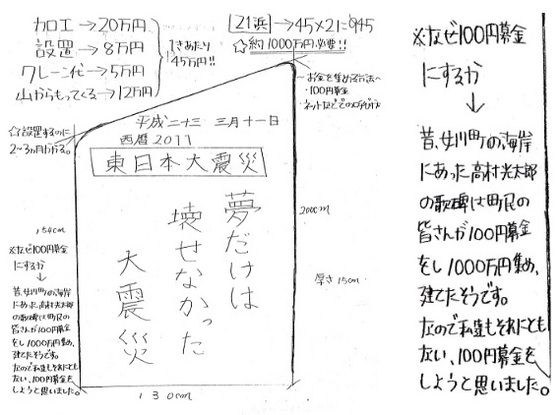 カロエ→20万円
設置→8万円
クレーン代→5万円
山からもってくる→12万円
1きあたり
45万円!!
21浜→45×21=945
☆約1000万円必要!!
お金を集める方法へ
・100円募金
☆設置するのに
2~3ヵ月かかる。
平成二十三 三月十一日
西暦2011
東日本大震災
夢だけは
壊せなかった
大震災
154cm
200cm
厚さ15cm
130cm
※なぜ100円募金
にするか
↓
昔、女川町の海岸
にあった高村光太郎
の歌碑は町民の
皆さんが100円募金
をし1000万円集め、
建てたそうです。
なので私達もそれにとも
ない、100円募金を
しようと思いました。
※なぜ100円募金
にするか
↓
昔、女川町の海岸
にあった高村光太郎
の歌碑は町民の
皆さんが100円募金
をし1000万円集め、
建てたそうです。
なので私達もそれにとも
ない、100円募金を
しようと思いました。